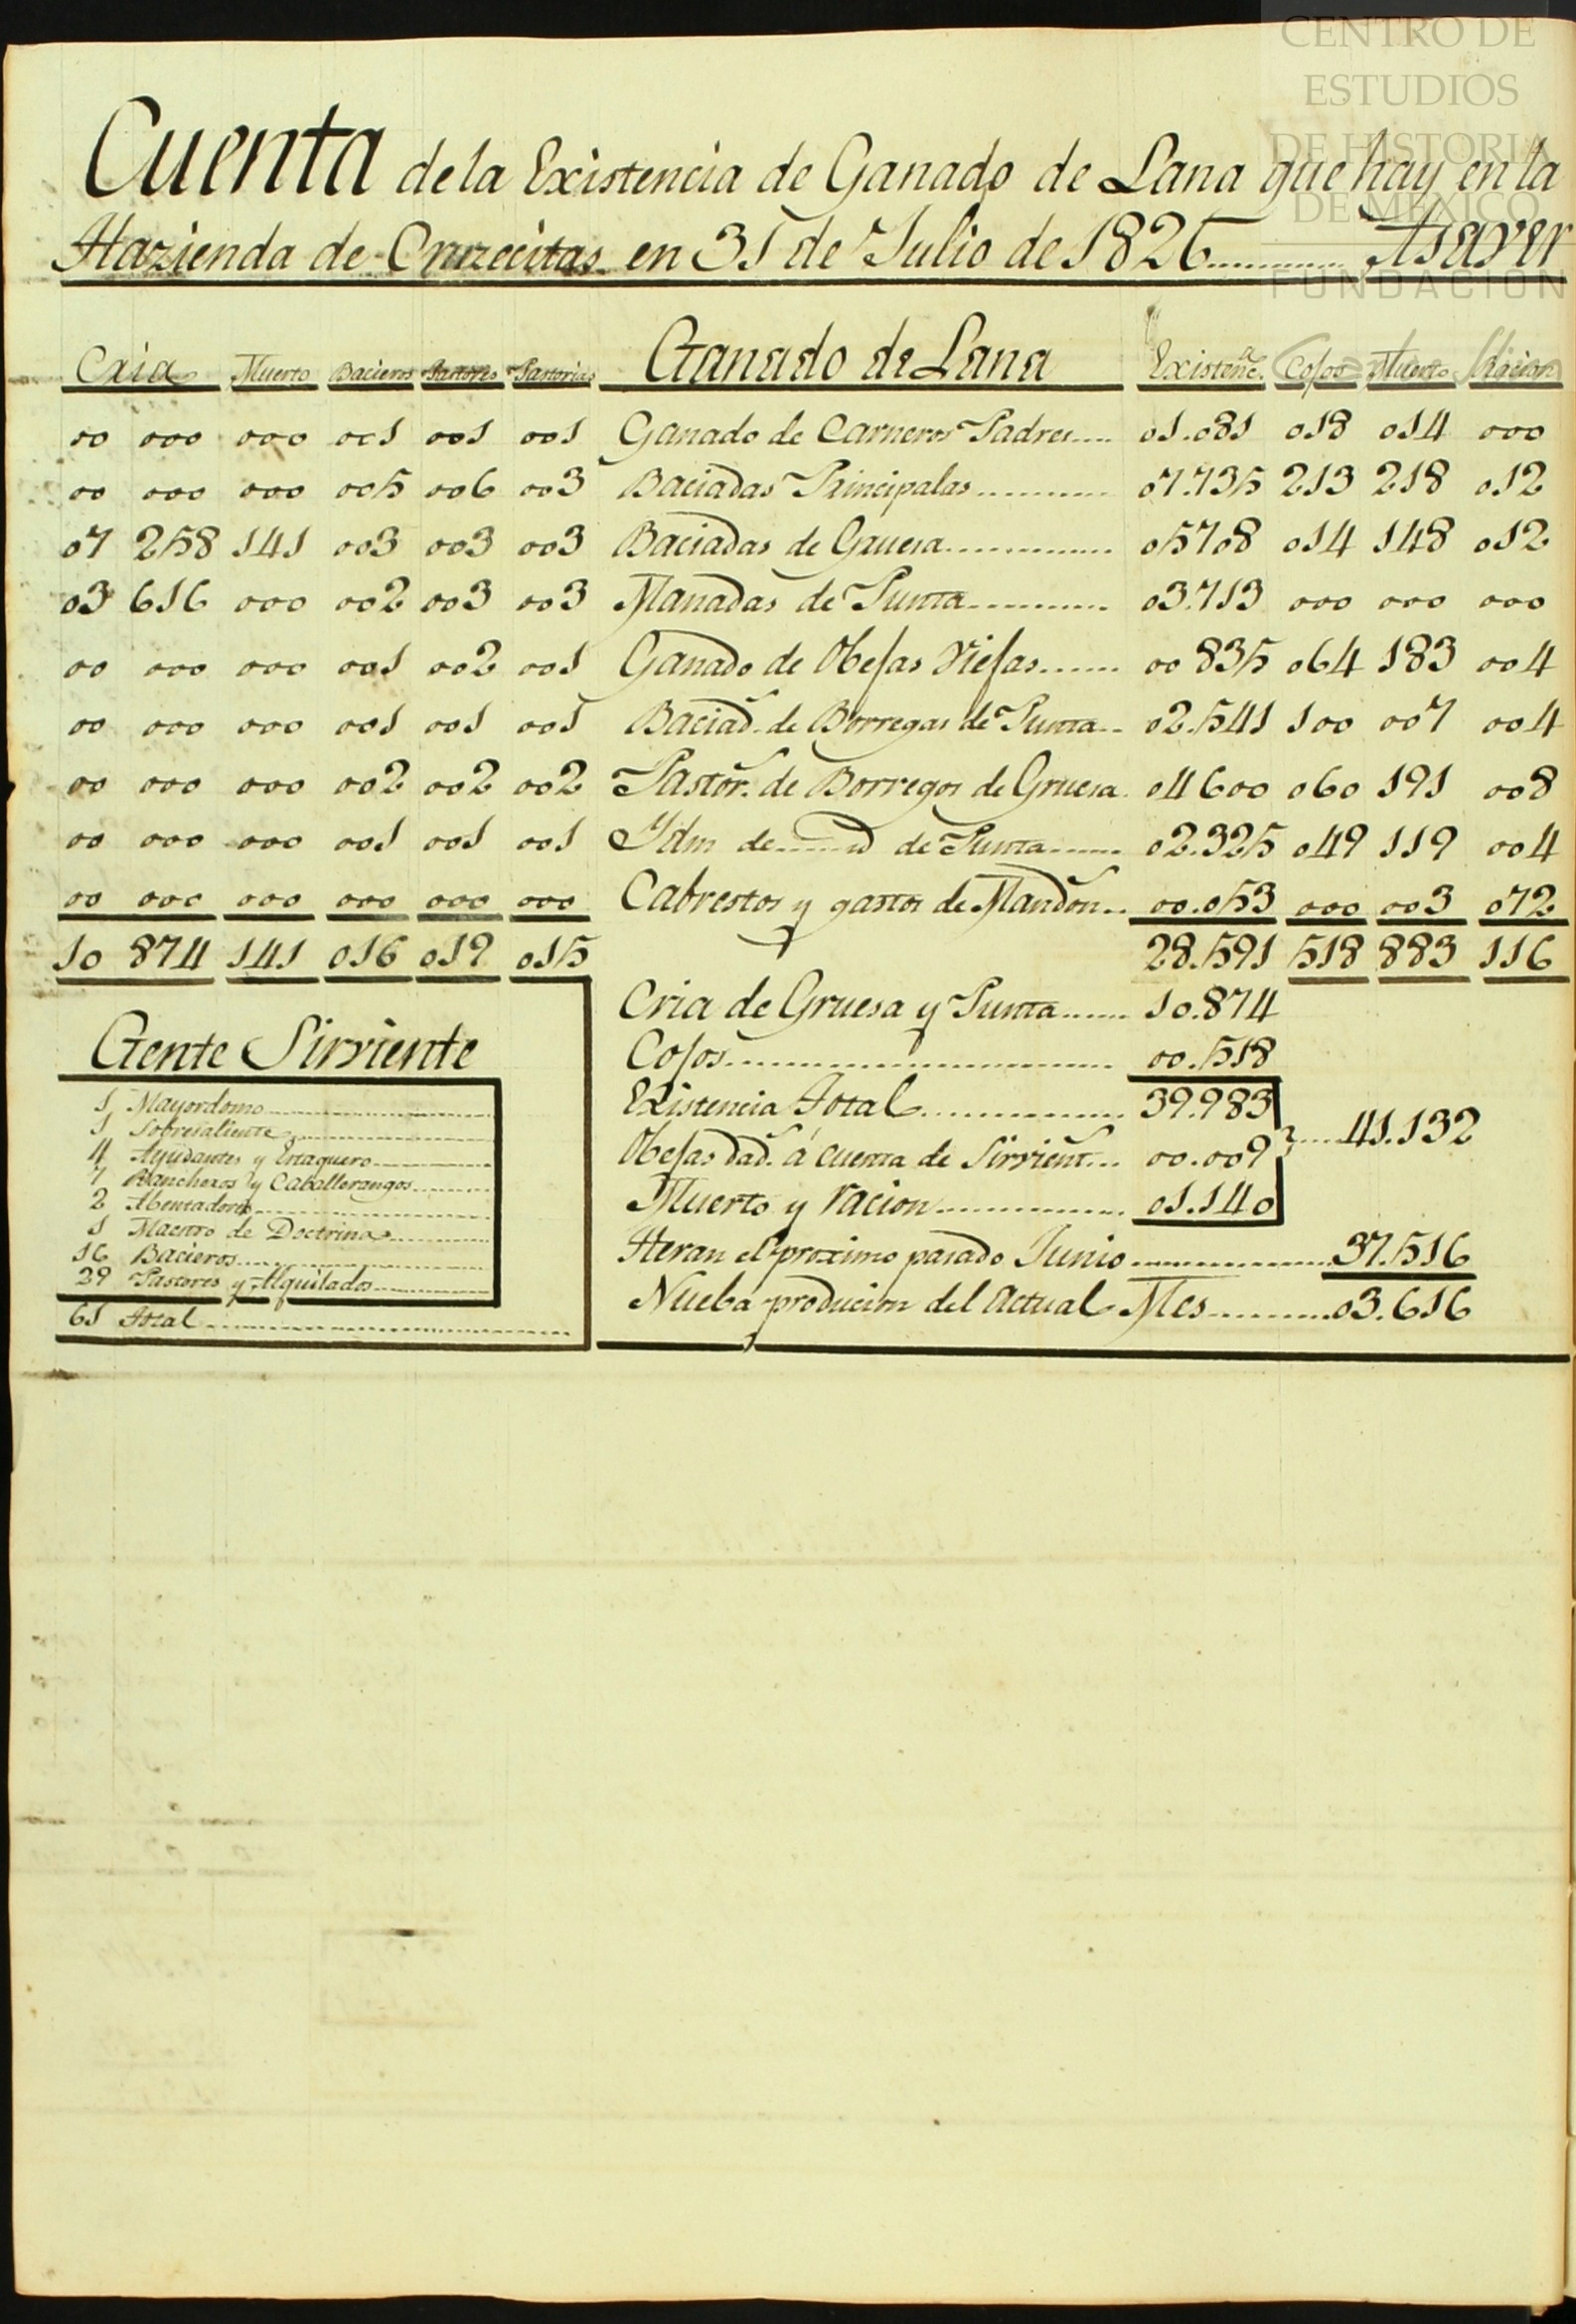 CENTRO DE
ESTUDIOS
DE HISTORIA
DE MÉXICO
FUNDACIÓN
Cuenta de la Existencia de Ganado de Lana que hay en la
Hazienda de Cruzecitas en 31 de Julio de 1826 ............ Asaver
Cria Muerto Bacieros Pastores Pastorias Ganado de Lana Existenc.ª Cojos Muerto Racion
00 000 000 001 001 001 Ganado de Carneros Padres .... 01.081 018 014 000
00 000 000 005 006 003 Baciadas Principalas ............ 07.735 213 218 012
07 258 141 003 003 003 Baciadas de Gruesa .............. 05708 014 148 012
03 616 000 002 003 003 Manadas de Punta ........... 03.713 000 000 000
00 000 000 001 002 001 Ganado de Obejas Viejas ....... 00 835 064 183 004
00 000 000 001 001 001 Baciad. de Borregas de Punta .. 02.541 100 007 004
00 000 000 002 002 002 Pastor. de Borregos de Gruesa . 04600 060 191 008
00 000 000 001 001 001 Ydm de ...... id de Punta ....... 02.325 049 119 004
00 000 000 000 000 000 Cabrestos y gastos de Mandon .. 00.053 000 003 072
10 874 141 016 019 015 28.591 518 883 116
Cria de Gruesa y Punta ....... 10.874
Cojos ............................ 00.518
Existencia Total .............. 39.983
Obejas dad. á cuenta de Sirvient. ... 00.009 ..... 41.132
Muerto y racion .............. 01.140
Heran el proximo pasado Junio ................ 37.516
Nueba producion del Actual Mes .......... 03.616
Gente Sirviente
1 Mayordomo
1 Sobresaliente
4 Ayudantes y Estaquero
7 Rancheros y Caballerangos
2 Abentadores
1 Maestro de Doctrina
16 Bacieros
29 Pastores y Alquilados
61 Total